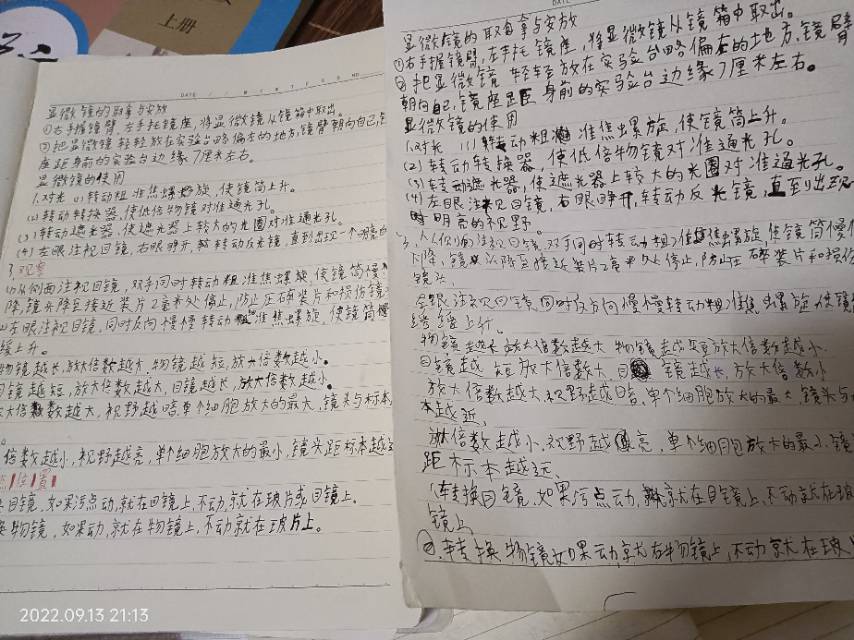 上册
DATE
显微镜的取拿与安放
①右手握镜臂,左手托镜座,将显微镜从镜箱中取出。
②把显微镜轻轻放在实验台略偏左的地方,镜臂朝向自己,
座距身前的实验台边缘7厘米左右。
显微镜的使用
1.对光 (1)转动粗准焦螺旋,使镜筒上升。
(2)转动转换器,使低倍物镜对准通光孔。
(3)转动遮光器,使遮光器上较大的光圈对准通光孔。
(4)左眼注视目镜,右眼睁开,转动反光镜,直到出现一个明亮的
3.观察
(1)从侧面注视目镜,双手同时转动粗准焦螺旋,使镜筒慢
降,镜头降至接近装片2毫米处停止,防止压碎装片和损伤镜
左眼注视目镜,同时反向慢慢转动准焦螺旋,使镜筒慢
缓上升。
物镜越长,放大倍数越大,物镜越短,放大倍数越小。
目镜越短,放大倍数越大,目镜越长,放大倍数越小。
大倍数越大,视野越暗单个细胞放大的最大,镜头与标本
倍数越小,视野越亮,单个细胞放大的最小,镜头距标本越
位置
目镜,如果污点动,就在目镜上,不动,就在玻片或目镜上。
物镜,如果动,就在物镜上,不动就在玻片上。
2022.09.13 21:13
DATE
显微镜的取拿与安放
①右手握镜臂,左手托镜座,将显微镜从镜箱中取出。
②把显微镜轻轻放在实验台略偏左的地方,镜臂
朝向自己,镜座距身前的实验台边缘7厘米左右。
显微镜的使用
1.对光 (1)转动粗准焦螺旋,使镜筒上升。
(2)转动转换器,使低倍物镜对准通光孔。
(3)转动遮光器,使遮光器上较大的光圈对准通光孔。
(4)左眼注视目镜,右眼睁开,转动反光镜,直到出现
明亮的视野。
3,从侧面注视目镜,双手同时转动粗准焦螺旋,使镜筒慢
下降,镜头降至接近装片2毫米处停止,防止压碎装片和损伤
镜头,
左眼注视目镜,同时反方向慢慢转动粗准焦螺旋,使镜
缓缓上升。
物镜越长放大倍数越大 物镜越短放大倍数越小
目镜越短放大倍数大,目镜越长,放大倍数小
放大倍数越大,视野越暗,单个细胞放大的最大,镜头与
本越近,
倍数越小,视野越亮,单个细胞放大的最小,镜
距标本越远、
转换目镜,如果污点动,就在目镜上,不动就在玻
镜上
②,转换物镜如果动就在物镜上,不动就在玻